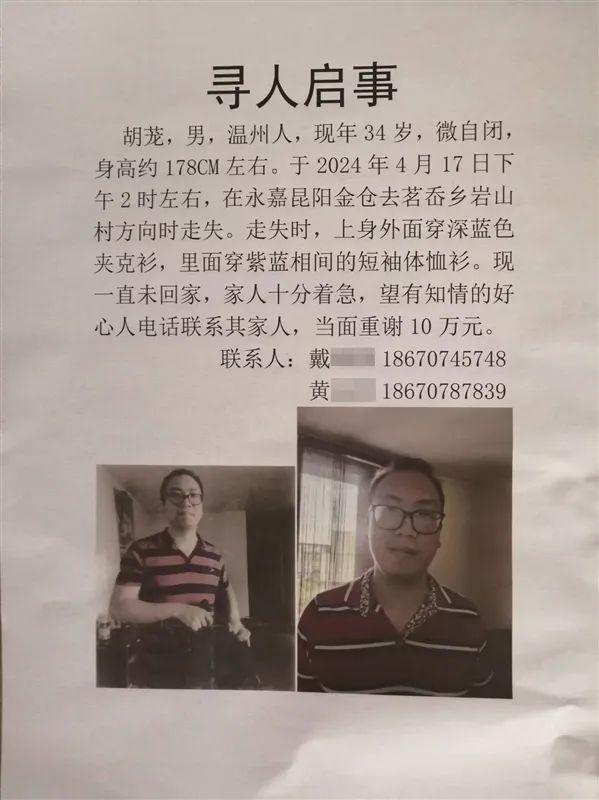 寻人启事
胡茏，男，温州人，现年34岁，微自闭，
身高约178CM左右。于2024年4月17日下
午2时左右，在永嘉昆阳金仓去茗岙乡岩山
村方向时走失。走失时，上身外面穿深蓝色
夹克衫，里面穿紫蓝相间的短袖体恤衫。现
一直未回家，家人十分着急，望有知情的好
心人电话联系其家人，当面重谢10万元。
联系人：戴 18670745748
黄 18670787839